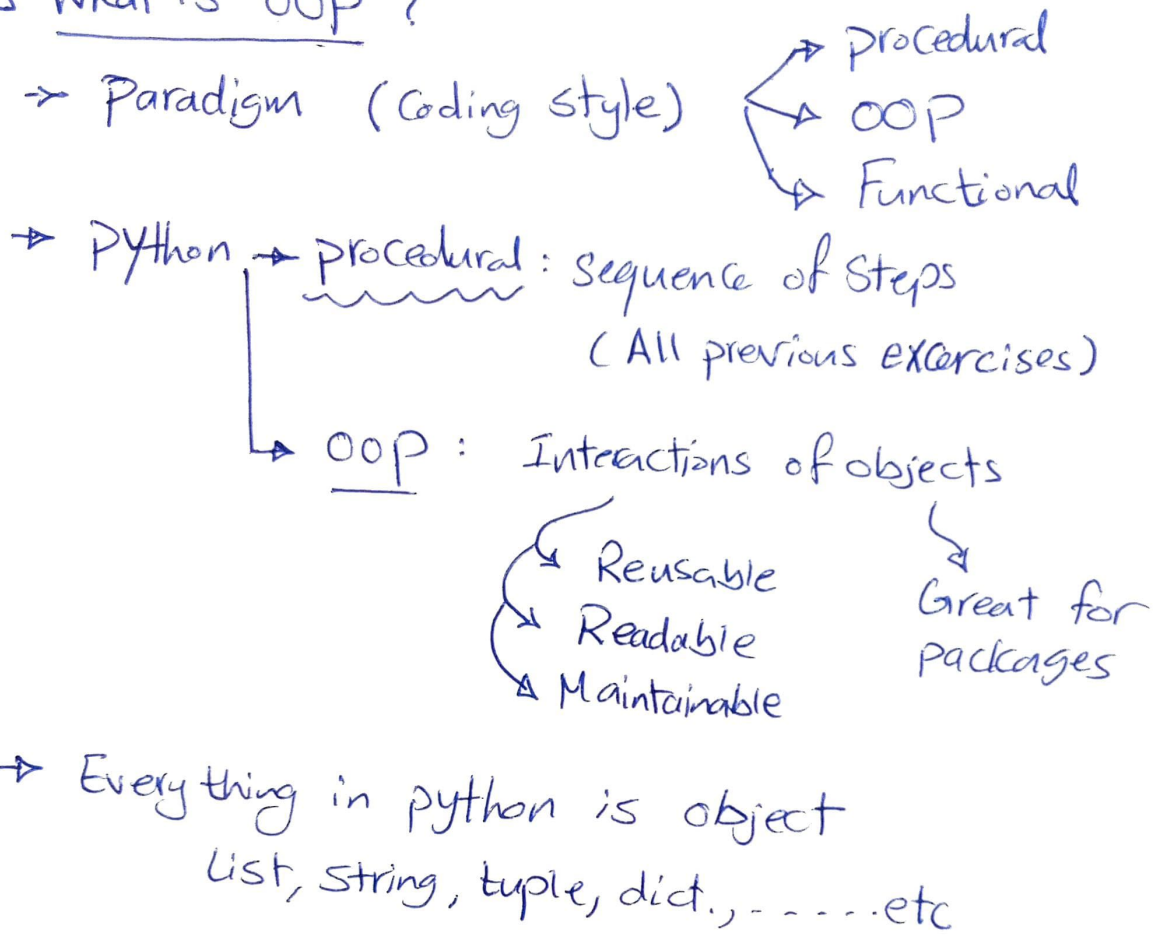 What is OOP ?
→ Paradigm (Coding style)
→ procedural
→ OOP
→ Functional
→ Python → procedural : sequence of steps
(All previous excercises)
→ OOP : Interactions of objects
Reusable
Readable
Maintainable
Great for
packages
→ Everything in python is object
List, string, tuple, dict., - - - - - . . etc